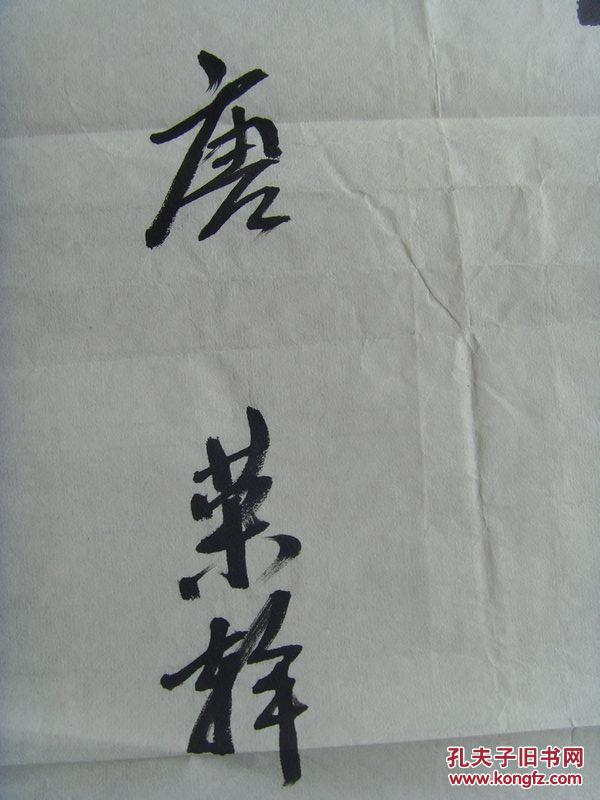 唐
荣幹
孔夫子旧书网
www.kongfz.com